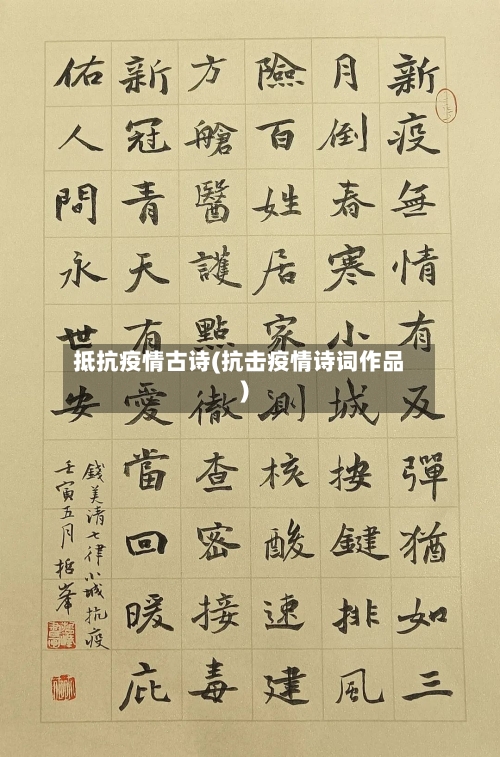 新疫無情有反彈猶如三
月倒春寒小城按鍵排風
險百姓居家測核酸速建
方艙醫護點徹查密接毒
新冠青天有愛當回暖庇
佑人間永世安
錢美清七律小城抗疫
壬寅五月
抵抗疫情古诗(抗击疫情诗词作品
)